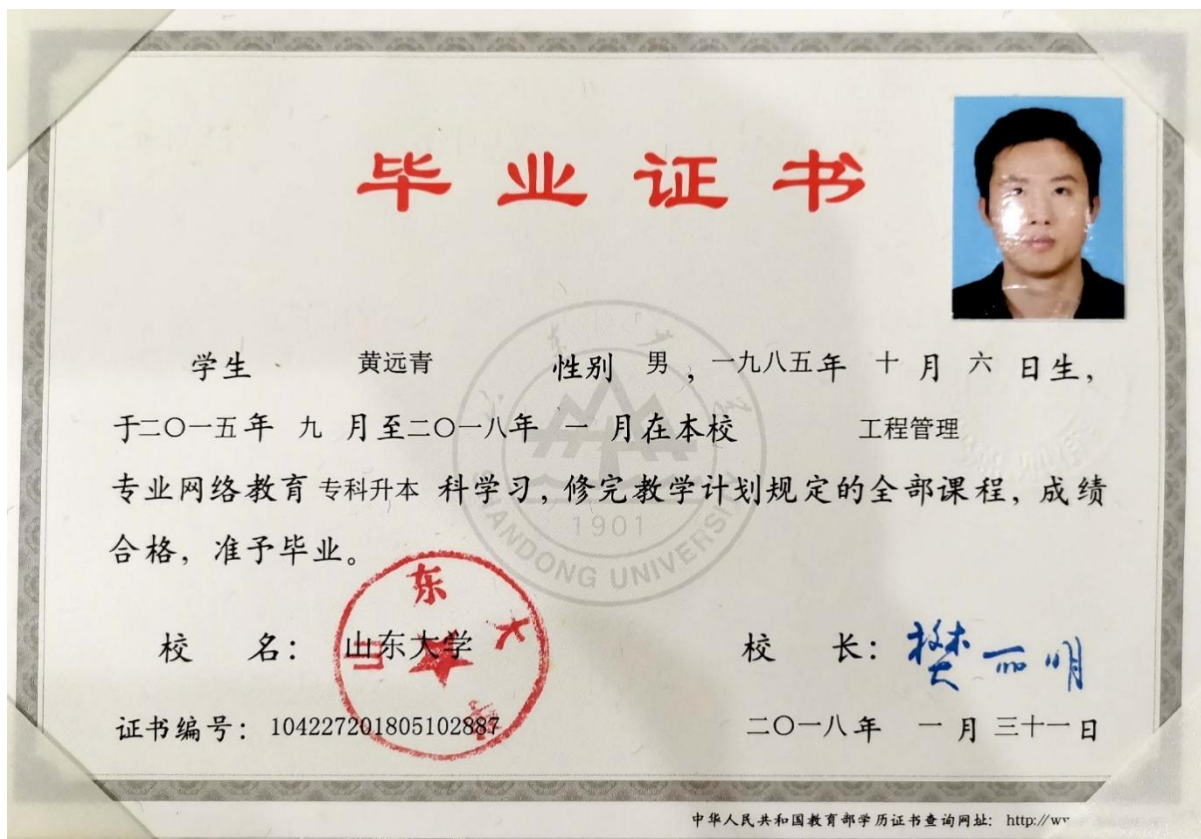 毕业证书
学生 黄远青 性别 男 ，一九八五年 十 月 六 日生，
于二〇一五年 九 月至二〇一八年 一 月在本校 工程管理
专业网络教育 专科升本 科学习，修完教学计划规定的全部课程，成绩
合格，准予毕业。
1901
SHANDONG UNIVERSITY
山东大学
校 名： 山东大学 校 长： 樊丽明
证书编号： 104227201805102887 二〇一八年 一 月 三十一日
中华人民共和国教育部学历证书查询网址： http://w